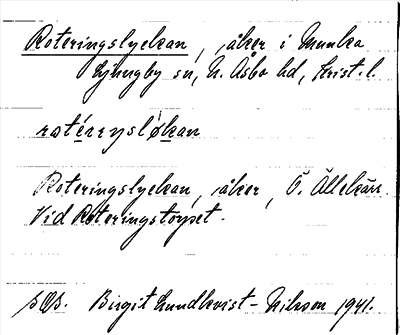 Roteringslyckan, åker i Munka
Ljungby sn, N. Åsbo hd, Krist. l.
Roteringslyckan, åker, Ö. Ällekärr.
Vid Roteringstorpet.
Birgit Lundkvist-Nilsson 1941.